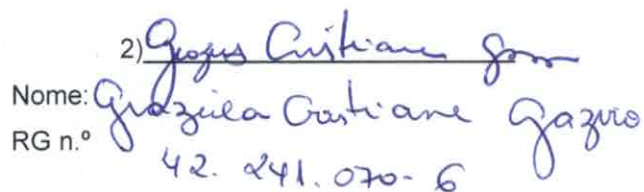 2) Cristiane
Nome: Graziela Cristiane Gaziro
RG n.º
42. 241. 070-6